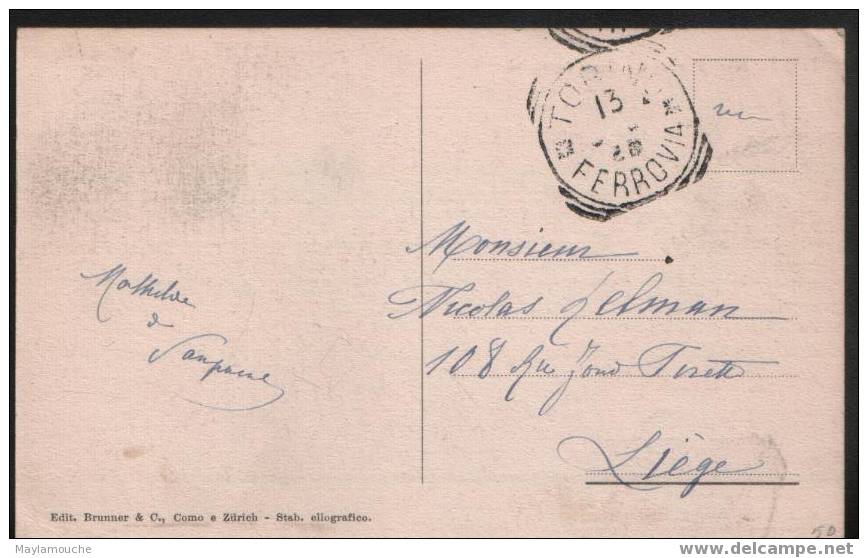 TORINO
13
FERROVIA
Monsieur
Nicolas Lelman
108 Rue Fond Pirette
Liège
Mathilde
de
Edit. Brunner & C., Como e Zürich - Stab. eliografico.
50
Maylamouche
www.delcampe.net